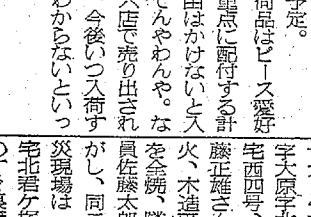 予定。
商品はピース愛好
重点に配付する計
由はかけないと入
てんやわんや。な
店で売り出され
今後いつ入荷す
わからないといっ
字大原字北
宅西四号、
藤正雄さ
火、木造
を全焼、
員佐藤太郎
がし、同
災現場は
宅北君ケ